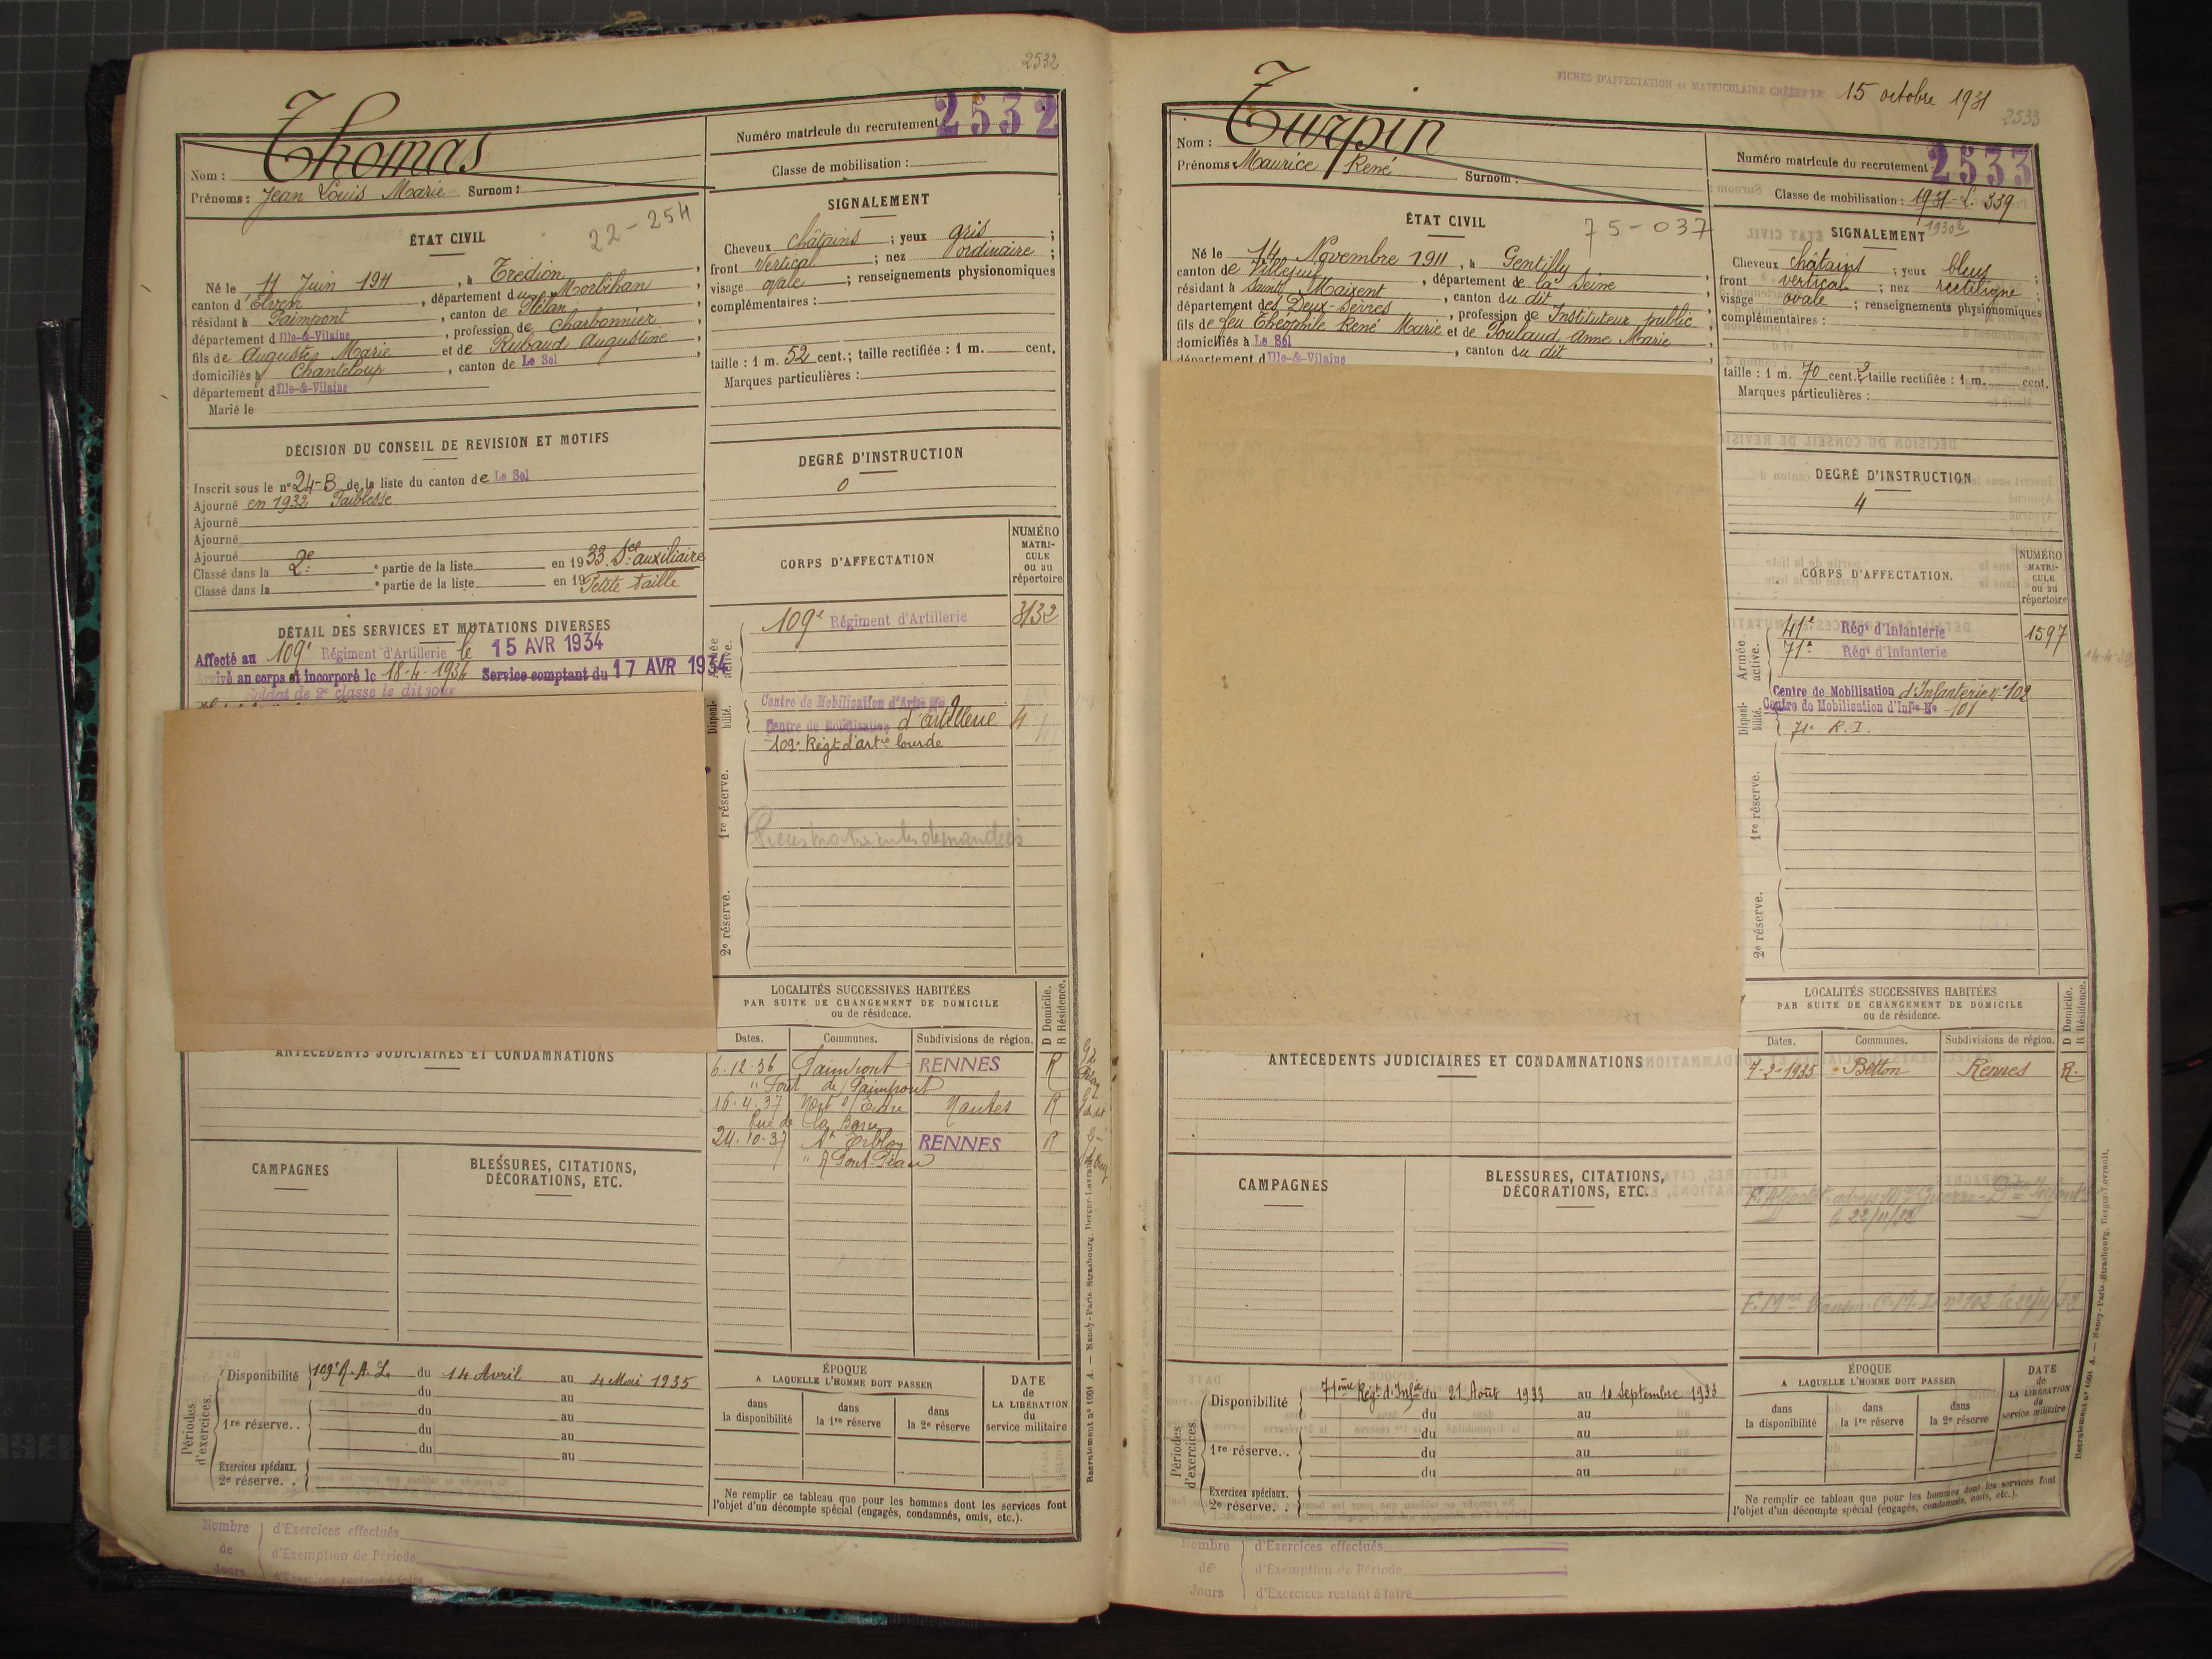 2532
Thomas
Numéro matricule du recrutement 2532
Nom :
Classe de mobilisation :
Prénoms : Jean Louis Marie Surnom :
ÉTAT CIVIL
22-254
Né le 11 Juin 1911, à Trédion,
canton d'Elven, département du Morbihan,
résidant à Paimpont, canton de Plélan,
département d Ille-&-Vilaine, profession de Charbonnier,
fils de Auguste Marie et de Rubaud Augustine
domiciliés à Chanteloup, canton de Le Sel
département d Ille-&-Vilaine
Marié le
SIGNALEMENT
Cheveux châtains ; yeux gris ;
front vertical ; nez ordinaire ;
visage ovale ; renseignements physionomiques
complémentaires :
taille : 1 m. 52 cent.; taille rectifiée : 1 m. cent.
Marques particulières :
DÉCISION DU CONSEIL DE REVISION ET MOTIFS
Inscrit sous le n° 24-B de la liste du canton de Le Sel
Ajourné en 1932 Faiblesse
Ajourné
Ajourné
Ajourné
Classé dans la 2e e partie de la liste en 1933. Sce auxiliaire
Classé dans la e partie de la liste en 19 Petite taille
DEGRÉ D'INSTRUCTION
0
DÉTAIL DES SERVICES ET MUTATIONS DIVERSES
Affecté au 109e Régiment d'Artillerie le 15 AVR 1934
Arrivé au corps et incorporé le 18-4-1934 Service comptant du 17 AVR 1934
Soldat de 2e classe le dit jour
CORPS D'AFFECTATION
NUMÉRO MATRI-CULE ou au répertoire
Armée active.
109e Régiment d'Artillerie 3132
Disponi-bilité.
Centre de Mobilisation d'Artie No
Centre de Mobilisation d'artillerie 4
109e Régt d'artie lourde
1re réserve.
Pièces matricules demandées
2e réserve.
LOCALITÉS SUCCESSIVES HABITÉES
PAR SUITE DE CHANGEMENT DE DOMICILE
ou de résidence.
D Domicile.
R Résidence.
Dates. Communes. Subdivisions de région.
6-12-36 Paimpont RENNES R
" Fort de Paimpont
16-4-37 Nort s/ Erdre Nantes R
Rue de la
24-10-37 St Erblon RENNES R
" à Pont-Péan
ANTÉCÉDENTS JUDICIAIRES ET CONDAMNATIONS
CAMPAGNES
BLESSURES, CITATIONS,
DÉCORATIONS, ETC.
Périodes d'exercices.
Disponibilité 109e R.A.L. du 14 Avril au 4 Mai 1935
du au
1re réserve.. du au
du au
du au
Exercices spéciaux.
2e réserve. .
ÉPOQUE
A LAQUELLE L'HOMME DOIT PASSER
dans la disponibilité
dans la 1re réserve
dans la 2e réserve
DATE de LA LIBÉRATION du service militaire
Ne remplir ce tableau que pour les hommes dont les services font
l'objet d'un décompte spécial (engagés, condamnés, omis, etc.).
Nombre de Jours
d'Exercices effectués
d'Exemption de Période
d'Exercices restant à faire
Recrutement n° 1001 A. — Nancy-Paris-Strasbourg, Berger-Levrault.
FICHES D'AFFECTATION et MATRICULAIRE CRÉÉES LE 15 octobre 1931
2533
Turpin
Nom :
Numéro matricule du recrutement 2533
Prénoms : Maurice René Surnom :
Classe de mobilisation : 1931-L. 339
1930
ÉTAT CIVIL
75-037
Né le 14 Novembre 1911, à Gentilly,
canton de Villejuif, département de la Seine
résidant à Saint Maixent, canton du dit,
département des Deux-Sèvres, profession de Instituteur public,
fils de feu Théophile René Marie et de Poulaud Anne Marie
domiciliés à Le Sel
département d Ille-&-Vilaine, canton du dit
SIGNALEMENT
Cheveux châtains ; yeux bleus ;
front vertical ; nez rectiligne ;
visage ovale ; renseignements physionomiques
complémentaires :
taille : 1 m. 70 cent.; taille rectifiée : 1 m. cent.
Marques particulières :
DEGRÉ D'INSTRUCTION
4
CORPS D'AFFECTATION.
NUMÉRO MATRI-CULE ou au répertoire
Armée active.
41e Régt d'Infanterie 1597
71e Régt d'Infanterie
Disponi-bilité.
Centre de Mobilisation d'Infanterie n° 102
Centre de Mobilisation d'Infie No 101
71e R.I.
1re réserve.
2e réserve.
LOCALITÉS SUCCESSIVES HABITÉES
PAR SUITE DE CHANGEMENT DE DOMICILE
ou de résidence.
D Domicile.
R Résidence.
Dates. Communes. Subdivisions de région.
7-2-1935 Betton Rennes R.
le 22/11/32
ANTÉCÉDENTS JUDICIAIRES ET CONDAMNATIONS
CAMPAGNES
BLESSURES, CITATIONS,
DÉCORATIONS, ETC.
Périodes d'exercices.
Disponibilité 71ème Régt d'Infie du 21 Août 1933 au 10 Septembre 1933
du au
du au
1re réserve.. du au
du au
Exercices spéciaux.
2e réserve. .
ÉPOQUE
A LAQUELLE L'HOMME DOIT PASSER
dans la disponibilité
dans la 1re réserve
dans la 2e réserve
DATE de LA LIBÉRATION du service militaire
Ne remplir ce tableau que pour les hommes dont les services font
l'objet d'un décompte spécial (engagés, condamnés, omis, etc.).
Nombre de Jours
d'Exercices effectués
d'Exemption de Période
d'Exercices restant à faire
Recrutement n° 1001 A. — Nancy-Paris-Strasbourg, Berger-Levrault.